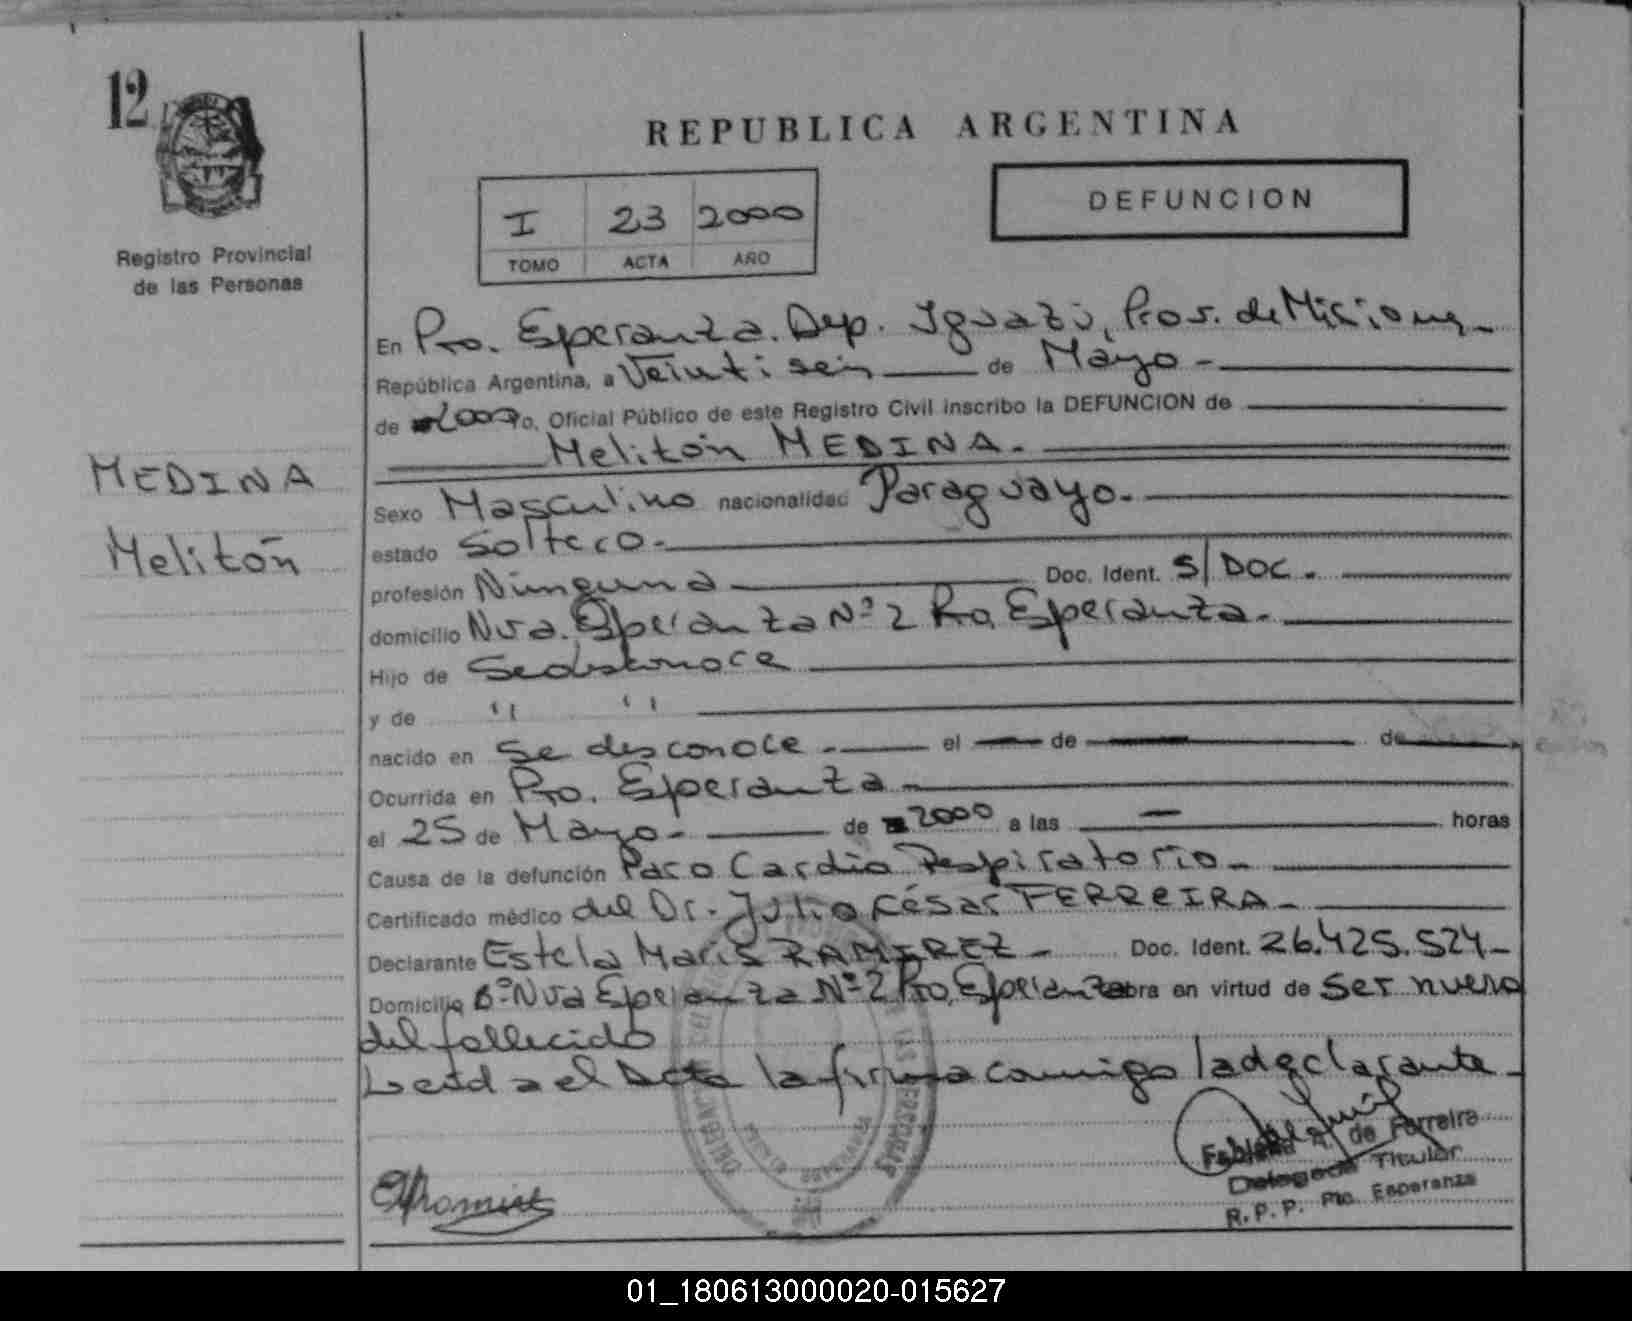 12
REPUBLICA ARGENTINA
DEFUNCION
I 23 2000
TOMO ACTA AÑO
Registro Provincial
de las Personas
MEDINA
Melitón
En Pto. Esperanza. Dep. Iguazú, Prov. de Misiones
República Argentina, a Veinti seis de Mayo -
de 2000 Yo, Oficial Público de este Registro Civil inscribo la DEFUNCION de
Melitón MEDINA.
Sexo Masculino nacionalidad Paraguayo.
estado Soltero.
profesión Ninguna Doc. Ident. S/DOC.
domicilio Nva. Esperanza Nº 2 Pto. Esperanza.
Hijo de Se desconoce
y de " "
nacido en Se desconoce. el — de — de
Ocurrida en Pto. Esperanza
el 25 de Mayo - de 2000 a las — horas
Causa de la defunción Paro Cardio Respiratorio -
Certificado médico del Dr. Julio César FERREIRA -
Declarante Estela Maris RAMIREZ - Doc. Ident. 26.425.524-
Domicilio Bº Nva Esperanza Nº 2 Pto. Esperanza obra en virtud de Ser nuera
del fallecido
Leida el Acta la firma conmigo la declarante -
de Ferreira
Delegada Titular
R. P. P. Pto. Esperanza
01_180613000020-015627